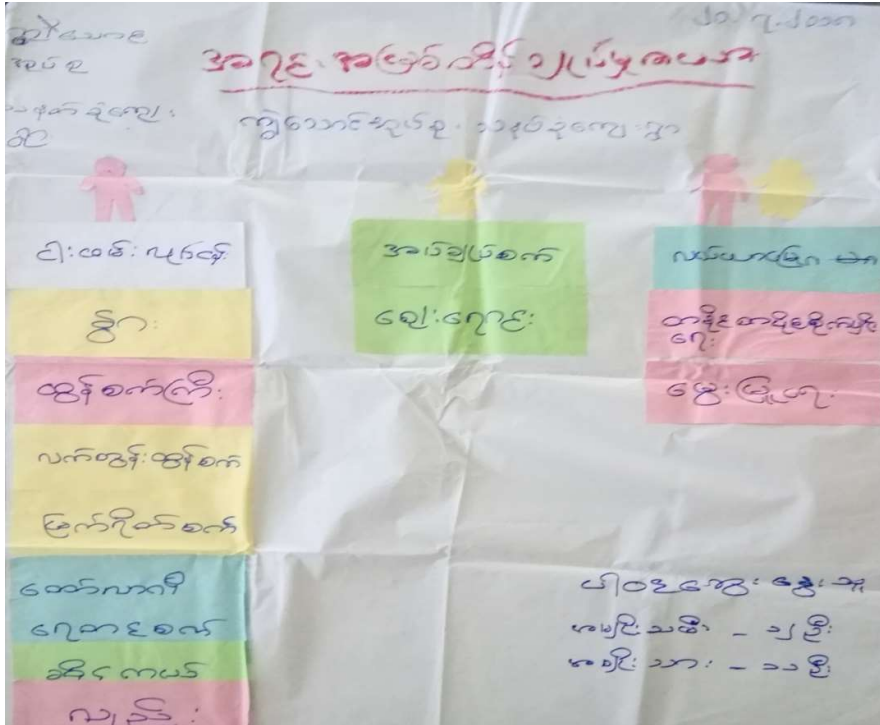 ၂၀.၇.၂၀၁၈
အုပ်စု
အရင်းအမြစ်ထိန်းချုပ်မှုဇယား
ကျွဲသောင်အုပ်စု၊
ငါးဖမ်းလုပ်ငန်း
နွား
ထွန်စက်ကြီး
လက်တွန်းထွန်စက်
မြက်ရိတ်စက်
ထော်လာဂျီ
ရေတင်စက်
ဆိုင်ကယ်
လှည်း
အပ်ချုပ်စက်
ဈေးရောင်း
လယ်ယာမြေ
တနိုင်တပိုင်စိုက်ပျိုး
ရေး
မွေးမြူရေး
ပါဝင်ဆွေးနွေးသူ
အမျိုးသမီး - ၁၂ ဦး
အမျိုးသား - ၁၁ ဦး